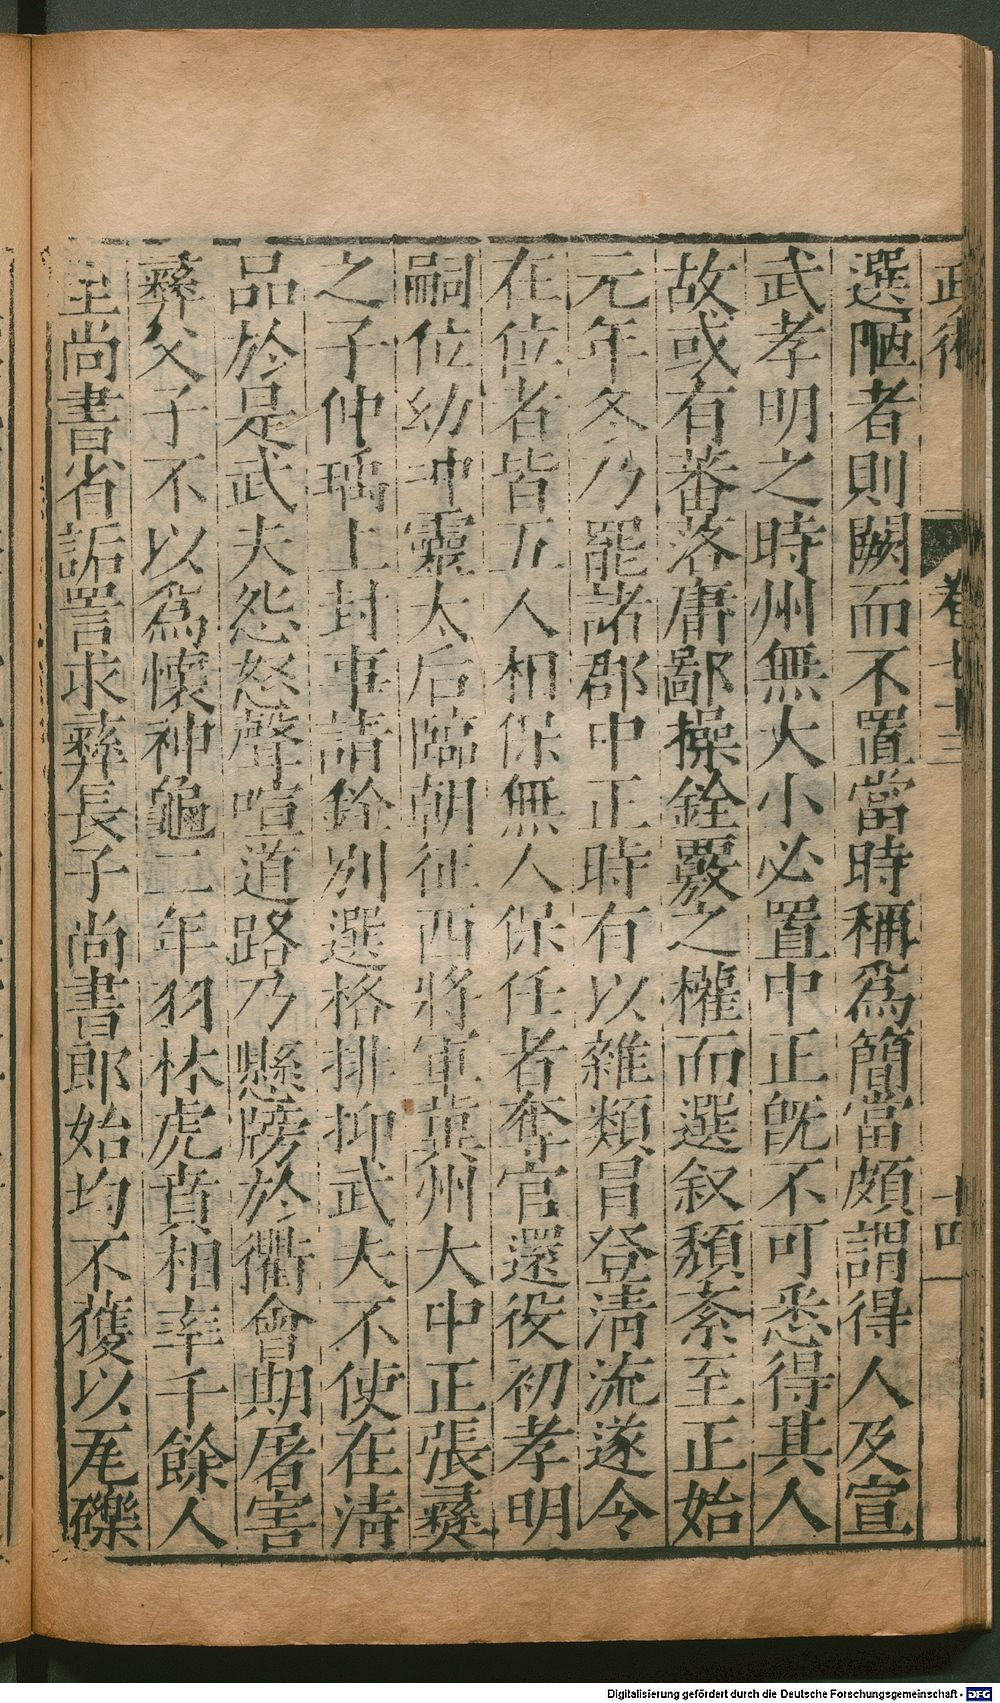 政術 卷七十三 十四
選陋者則闕而不置當時稱爲簡當頗謂得人及宣
武孝明之時州無大小必置中正旣不可悉得其人
故或有蕃落庸鄙操銓覈之權而選叙頹紊至正始
元年冬乃罷諸郡中正時有以雜類冒登淸流遂令
在位者皆五人相保無人保任者奪官還役初孝明
嗣位幼沖靈太后臨朝征西將軍冀州大中正張彝
之子仲瑀上封事請銓別選格排抑武夫不使在淸
品於是武夫怨怒聲喧道路乃懸牓於衢會期屠害
彝父子不以爲懷神龜二年羽林虎賁相率千餘人
至尚書省詬詈求彝長子尚書郎始均不獲以瓦礫
Digitalisierung gefördert durch die Deutsche Forschungsgemeinschaft - DFG